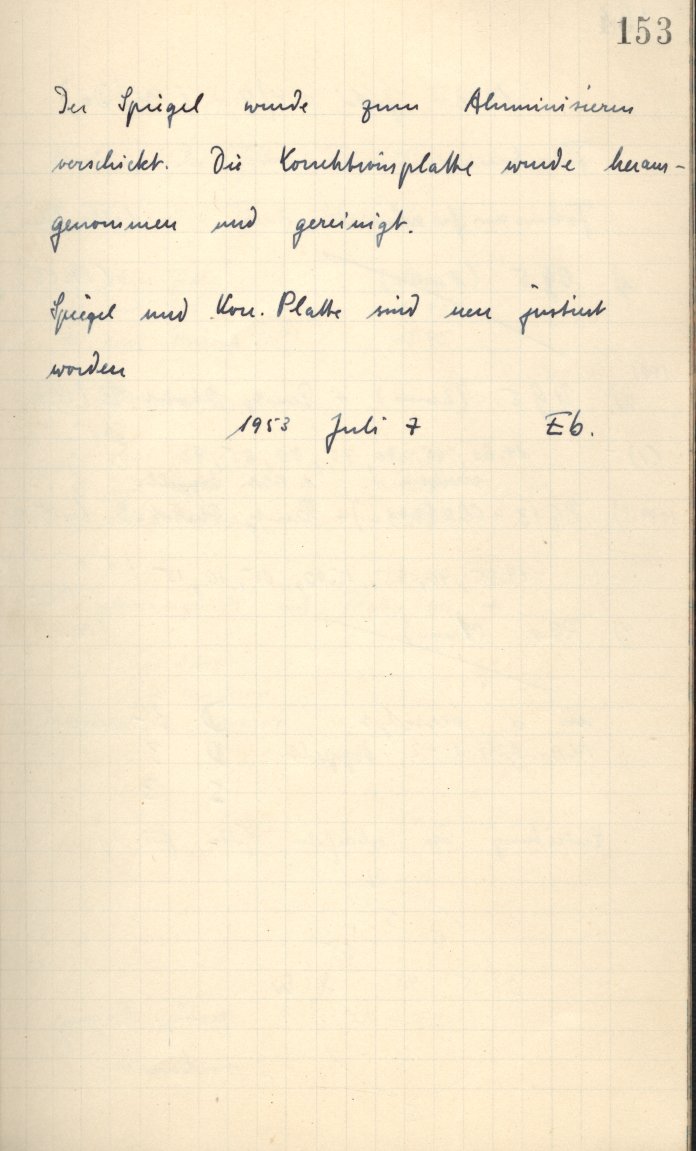 153
Der Spiegel wurde zum Aluminisieren
verschickt. Die Korrektionsplatte wurde heraus-
genommen und gereinigt.
Spiegel und Korr. Platte sind neu justiert
worden
1953 Juli 7 Eb.